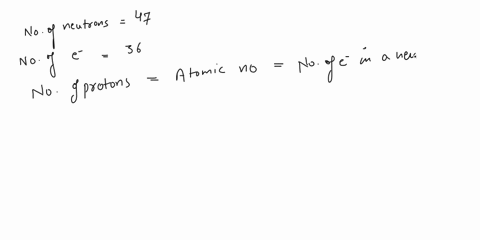 No. of neutrons = 47
No. of e⁻ = 36
No. of protons = Atomic no = No. of e⁻ in a neu